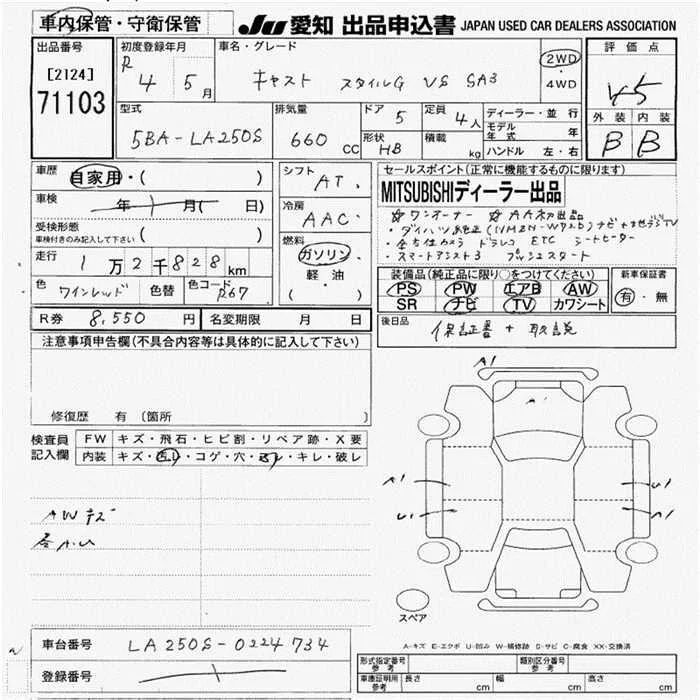 車内保管・守衛保管
JU 愛知 出品申込書 JAPAN USED CAR DEALERS ASSOCIATION
出品番号
[2124]
71103
初度登録年月
R 4 5月
車名・グレード
キャスト スタイルG VS SA3
2WD
・
4WD
評価点
4.5
外装 内装
B B
型式
5BA-LA250S
排気量
660 CC
ドア 5
形状 HB
定員 4人
積載 kg
ディーラー・並行
モデル年式 年
ハンドル 左・右
車歴 自家用・( )
車検 年 月( 日)
受検形態
車検付きのみ記入して下さい ( )
走行 1万2千828km
色 ワインレッド 色替 色コード R67
シフト AT
冷房 AAC
燃料
ガソリン
・
軽油
( )
セールスポイント(正常に機能するものに限ります)
MITSUBISHIディーラー出品
☆ワンオーナー ☆AA初出品
・ダイハツ純正(NMZN-W72D)ナビ+地デジTV
・全方位カメラ ドラレコ ETC シートヒーター
・スマートアシスト3 プッシュスタート
装備品(純正品に限り○をつけてください)
PS PW エアB AW
SR ナビ TV カワシート
新車保証書
有・無
R券 8,550 円 名変期限 月 日
後日品 保証書+取説
注意事項申告欄(不具合内容等は具体的に記入して下さい)
修復歴 有(箇所 )
検査員記入欄
FW キズ・飛石・ヒビ割・リペア跡・X要
内装 キズ・汚レ・コゲ・穴・スレ・キレ・破レ
AWキズ
A1
A'
A1
U1
U1
A1
スペア
車台番号 LA250S-0224734
登録番号
A-キズ E-エクボ U-凹み W-補修跡 S-サビ C-腐食 XX-交換済
形式指定番号 参考 類別区分番号 参考
車庫証明用 参考 長さ cm 幅 cm 高さ cm